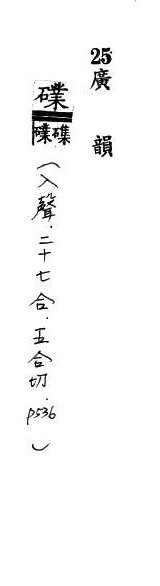 25廣韻
礏磼礏(入聲.二十七合.五合切.p536)